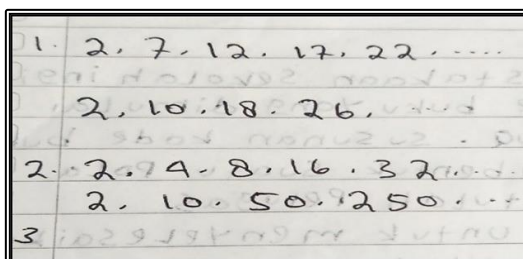 1. 2. 7. 12. 17. 22. ....
2. 10. 18. 26.
2. 2. 4. 8. 16. 32....
2. 10. 50. 250. ...
3